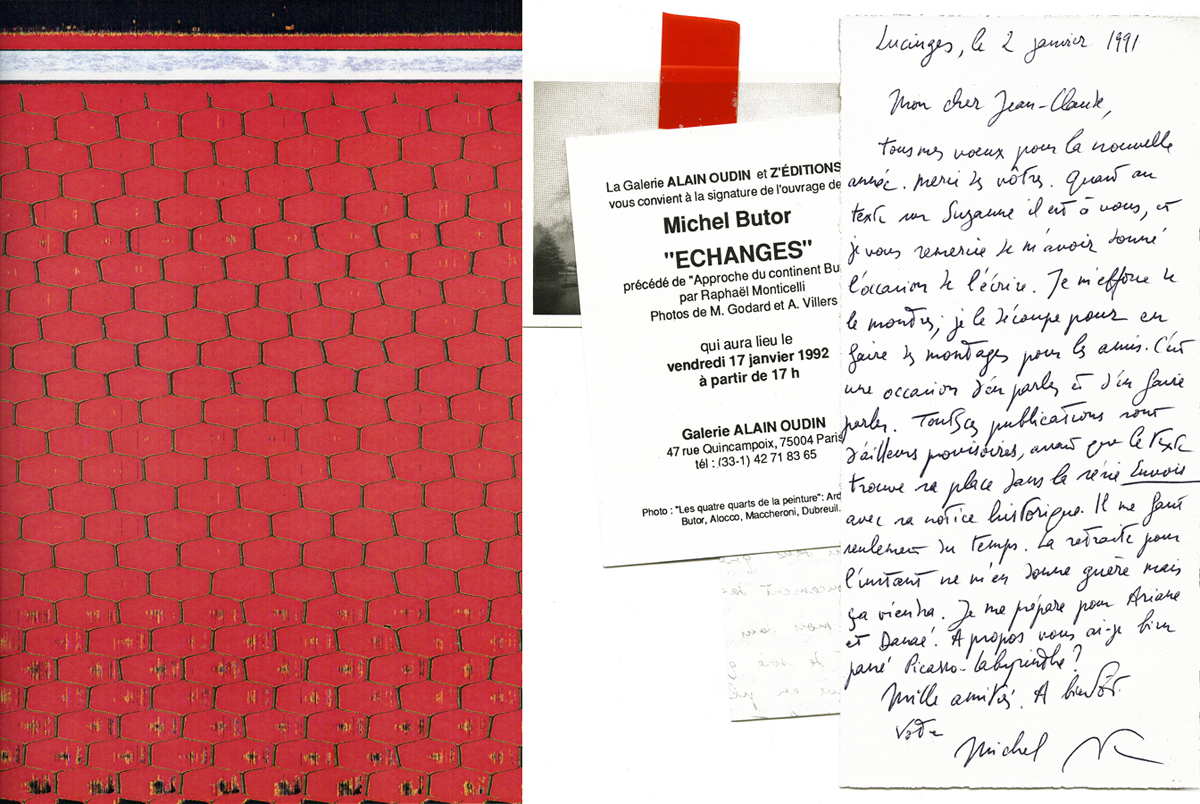 La Galerie ALAIN OUDIN et Z'ÉDITIONS
vous convient à la signature de l'ouvrage de
Michel Butor
"ECHANGES"
précédé de "Approche du continent Bu
par Raphaël Monticelli
Photos de M. Godard et A. Villers
qui aura lieu le
vendredi 17 janvier 1992
à partir de 17 h
Galerie ALAIN OUDIN
47 rue Quincampoix, 75004 Paris
tél : (33-1) 42 71 83 65
Photo : "Les quatre quarts de la peinture": Ard
Butor, Alocco, Maccheroni, Dubreuil.
Lucinges, le 2 janvier 1991
Mon cher Jean-Claude,
tous mes voeux pour la nouvelle
année. Merci des vôtres. Quant au
texte sur Suzanne il est à vous, et
je vous remercie de m'avoir donné
l'occasion de l'écrire. Je m'efforce de
le montrer; je le découpe pour en
faire des montages pour les amis. C'est
une occasion d'en parler et d'en faire
parler. Toutes ces publications sont
d'ailleurs provisoires, avant que le texte
trouve sa place dans la série Envois
avec sa notice historique. Il me faut
seulement du temps. La retraite pour
l'instant ne m'en donne guère mais
ça viendra. Je me prépare pour Ariane
et Danaé. A propos vous ai-je bien
passé Picasso-labyrinthe?
Mille amitiés. A bientôt.
Votre
Michel